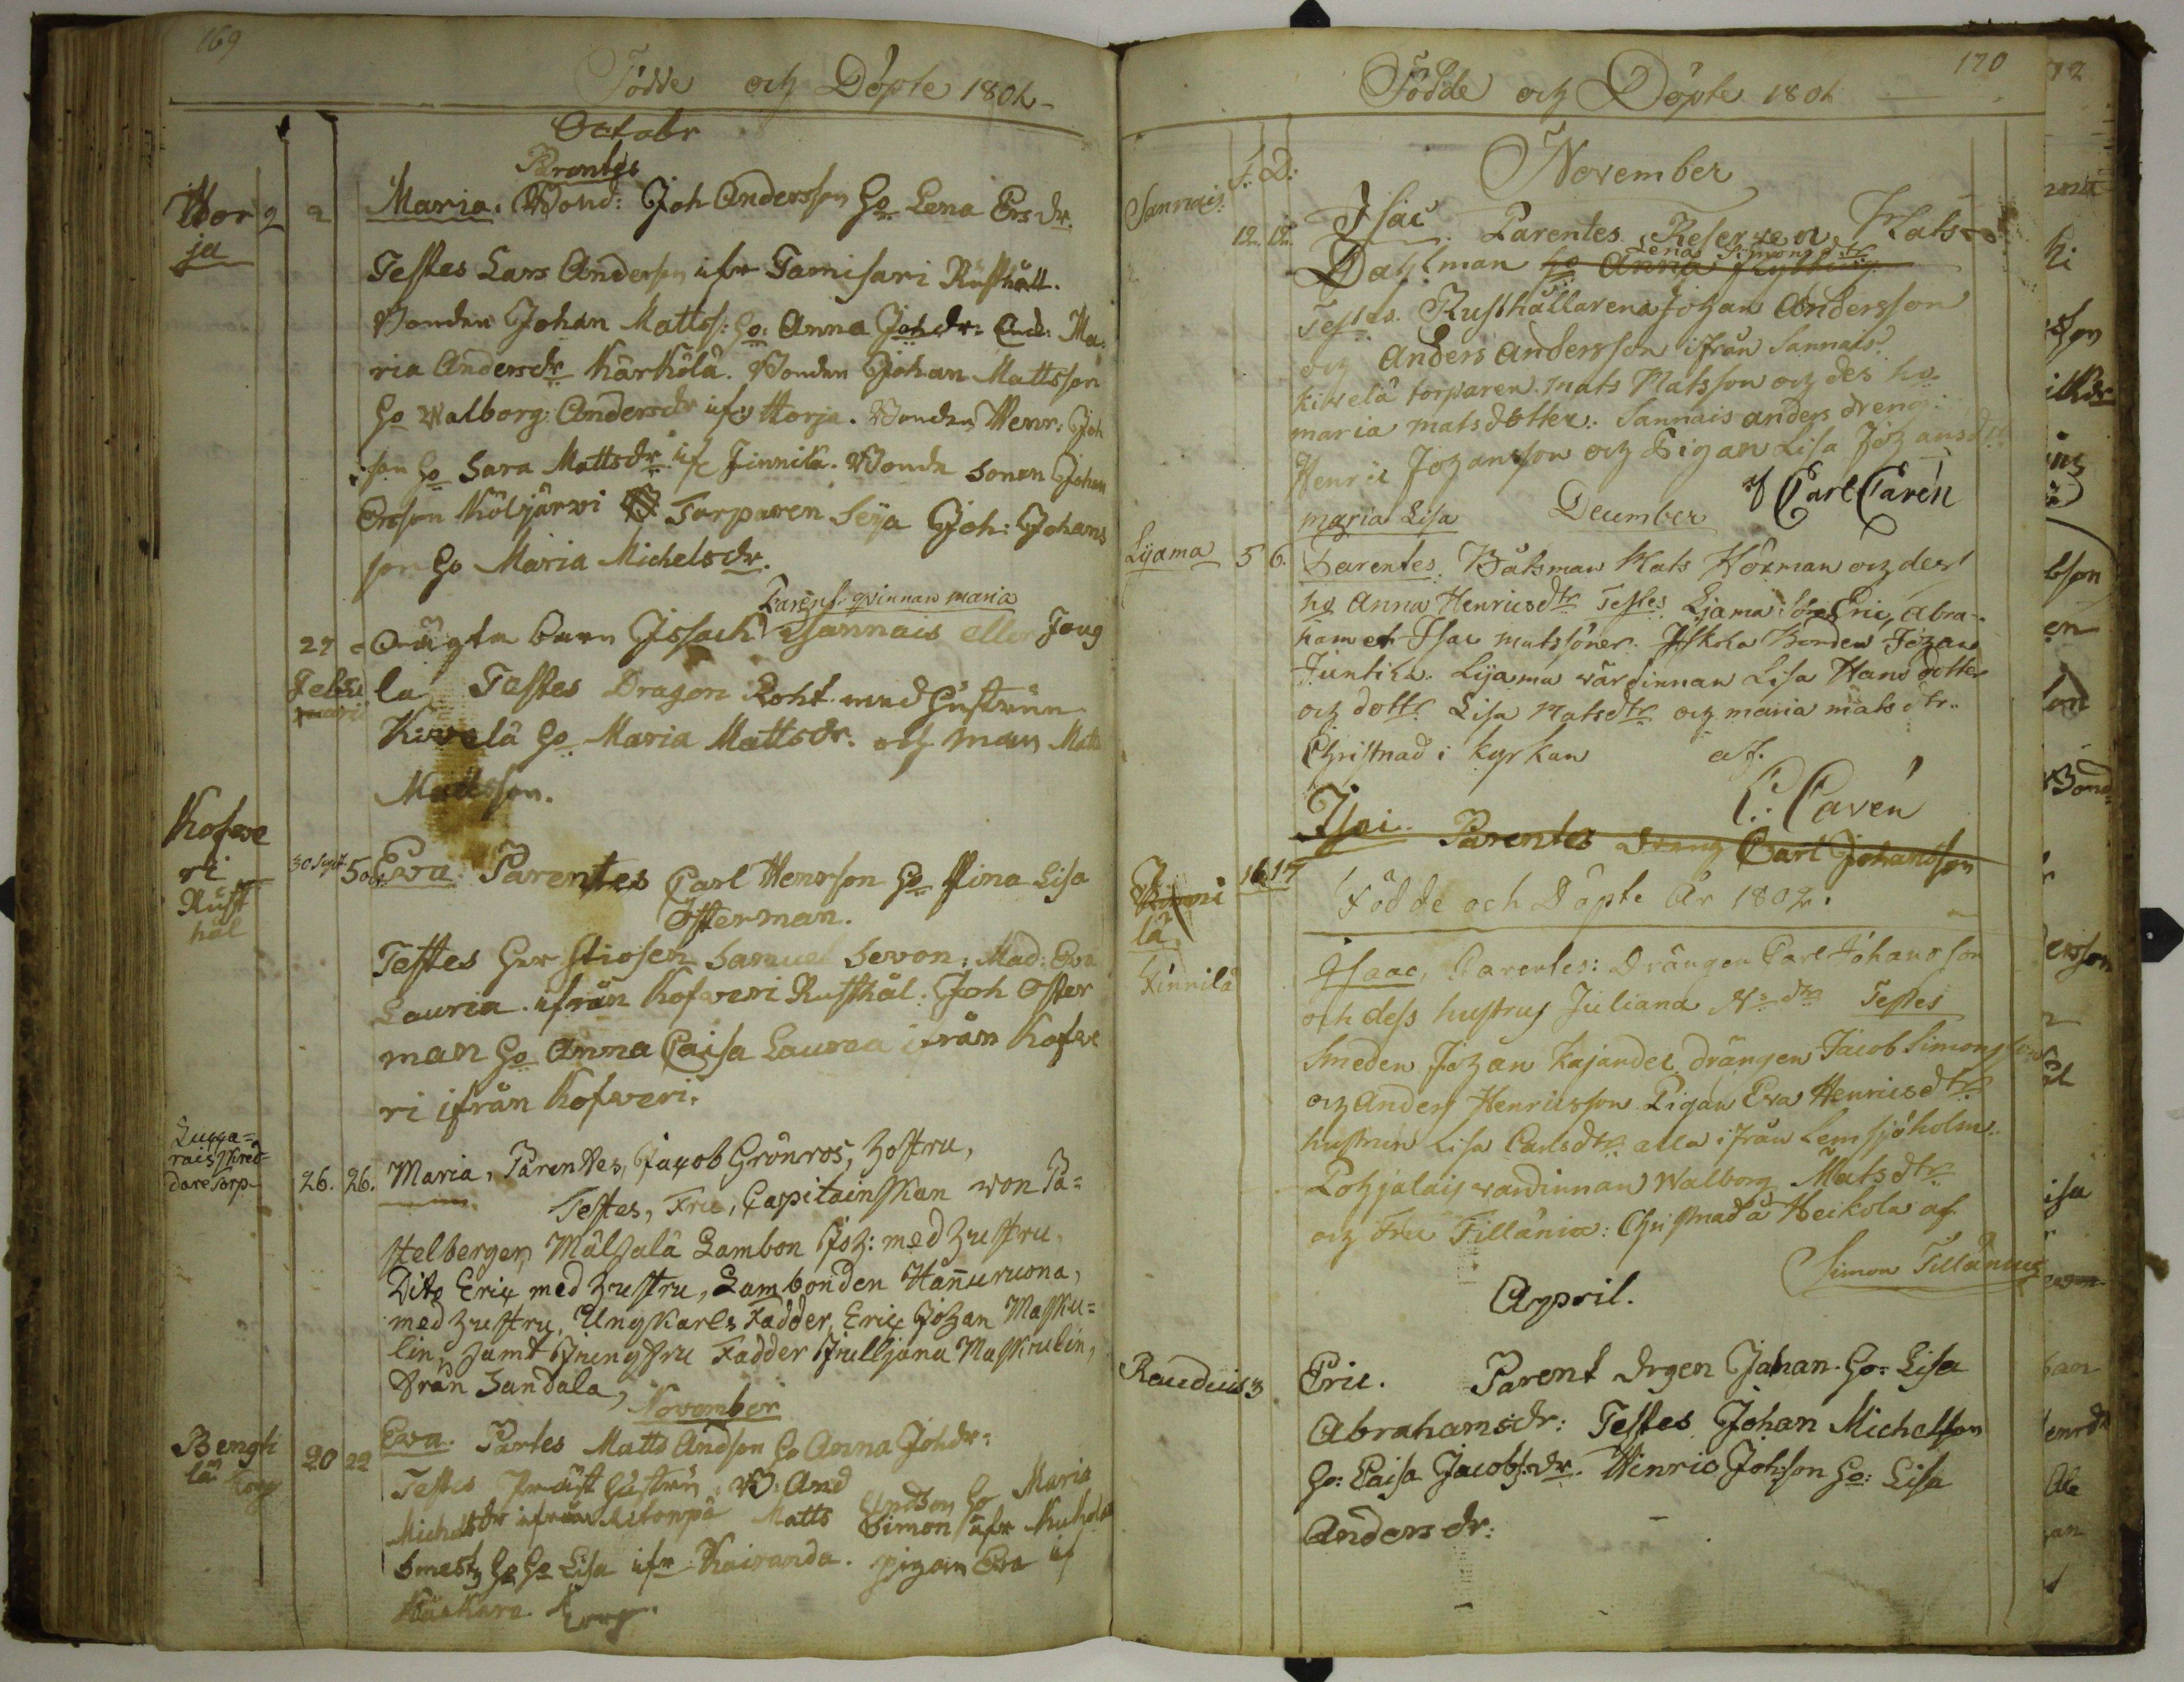 169
Födde och Döpte 1801
Octobr
Parentes
Horja 2 2 Maria. Bond: Joh Andersson ho Lena Ersdr.
Testes Lars Andersson ifr Tamisari Rusthåll.
Bonden Johan Matts: ho: Anna Johdr: And: Ma-
ria Andersdr Kärkölä. Bonden Johan Mattsson
ho Walborg Andersdr ifr Horja. Bonden Henr: Joh
son ho Sara Mattsdr if Finnilä. Bonde Sonen Johan
Ersson Köljärvi Torparen Seija Joh: Johans
son ho Maria Michelsdr.
Parens qvinnan maria
27 Oägta barn Issach Sannais eller Joug
Februarii la Testes Dragon Roht med hustrun
Kiwelä ho Maria Mattsdr. och man Matts
Mattsson.
Kofweri Rusthål 30 Sept. 5 Oct Eva. Parentes Carl Henrson ho Stina Lisa
Österman.
Testes Herr Samuel Sevon. Mad: Eva
Lauria. ifrån Kofweri Rusthål. Joh Öster
man ho Anna Caisa Laurea ifrån Kofwe
ri ifrån Kofweri.
rais Skred-
dare Torp 26. 26. Maria, Parentes, Jacob Grönros, hostru,
Testes, Fru, Capitainskan von Pa=
stelberger, Mälsalä Lambon Joh: med hustru,
Dito Eric med hustru, Lambonden Hännuruona,
med hustru, Ungkarls Fadder, Eric Johan Masku=
lin, samt Jungfru Fadder Julljana Maskulin,
från Sandala,
November
Bengtilä Torp 20 22 Eva. Partes Matts Andson ho Anna Johdr:
Testes Präst hustru, B: And
Michelsdr ifrån Astonpä Matts Andson ho Maria
Simon ifr Kuhala
Smest, ho ho Lisa ifr Kairanda. pigan Eva if
Torp.
170
Födde och Döpte 1801
F: D:
November
Sannais 12. 12. Isac Parentes Reserven Mats
Lena Simonsdtr
Dahlman ho Anna
Testes. Rusthållarena Johan Andersson
och Anders Andersson ifrån Sannais.
Kiwelä torparen Mats Matsson och des ho
maria matsdotter. Sannais anders dreng.
Henric Johansson och Pigan Lisa Johansdtr
af Carl Cavén
maria Lisa December
Lijama 5 6. Parentes. Båtsman Mats Hörman och dess
ho Anna Henricsdtr Testes Lijama Eric Abra-
ham et Isac matssöner. Iskola Bonden Johan
Juntila. Lijama wärdinnan Lisa Hansdotter
och dottr Lisa Matsdtr och maria mats dtr.
Christnad i kyrkan af.
C: Cavén
Isai. Parentes dreng Carl Johansson
16 17
Födde och Döpte År 1802.
lä
Finnilä Isaac, Parentes: Drängen Carl Johansson
och dess hustru Juliana Ns dtr Testes
Smeden Johan Kajander drängen Jacob Simonsson
och Anders Henricsson Pigan Eva Henricsdtr
hustrun Lisa Carlsdtr alla ifrån Lemsjöholm.
Pohjalais wärdinnan Walborg Matsdtr
och Fru Tillänia: Christnad å Heikola af
Simon Tillänius
April.
Rauduis 3 Eric. Parent drgen Johan. ho: Lisa
Abrahamsdr: Testes Johan Michelsson
ho: Caisa Jacobs:dr. Henric Johson ho: Lisa
Anders dr: